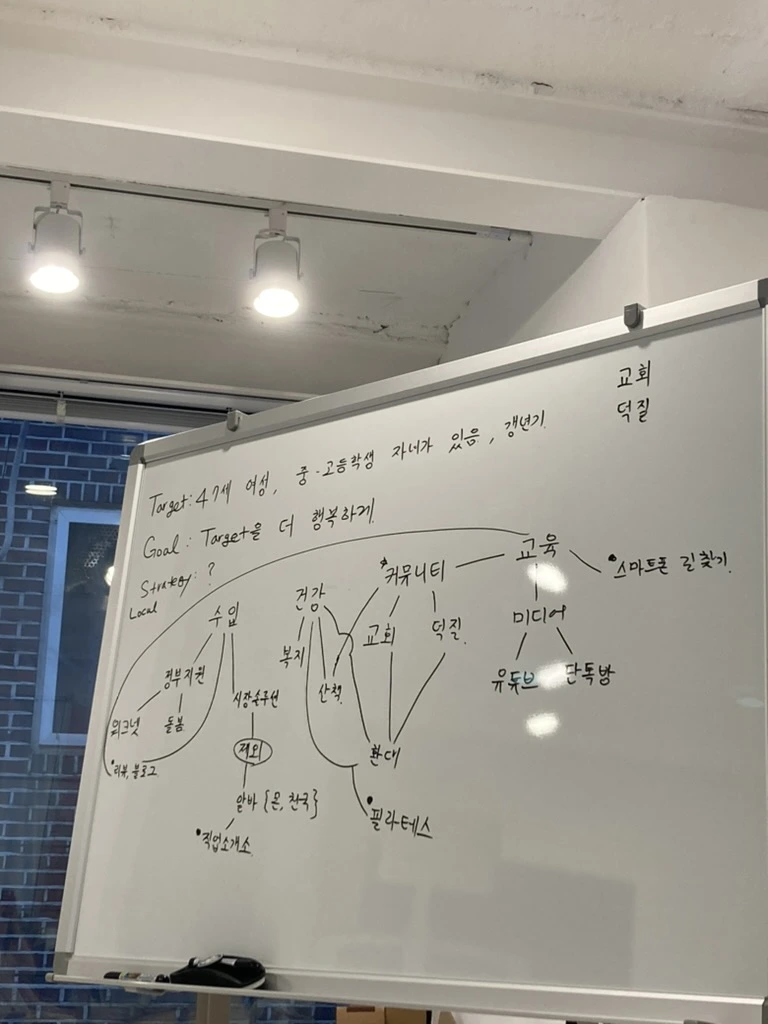 교회
덕질
Target: 47세 여성, 중·고등학생 자녀가 있음, 갱년기
Goal: Target을 더 행복하게
Strategy: ?
Local
수입
건강
*커뮤니티
교육
•스마트폰 길찾기
정부지원
시장솔루션
복지
산책
교회
덕질
미디어
워크넷
돌봄
유튜브
단톡방
•리뷰, 블로그
제외
환대
알바 {몬, 천국}
•직업소개소
•필라테스